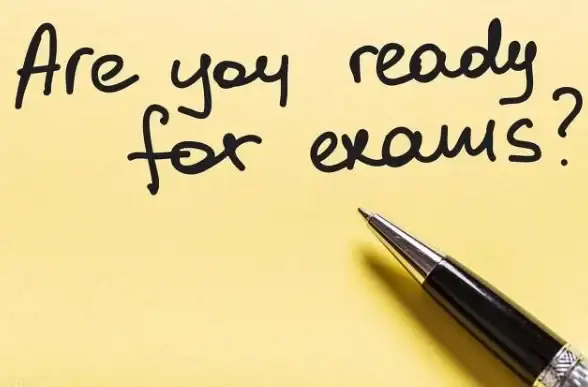 Are you ready
for exams?